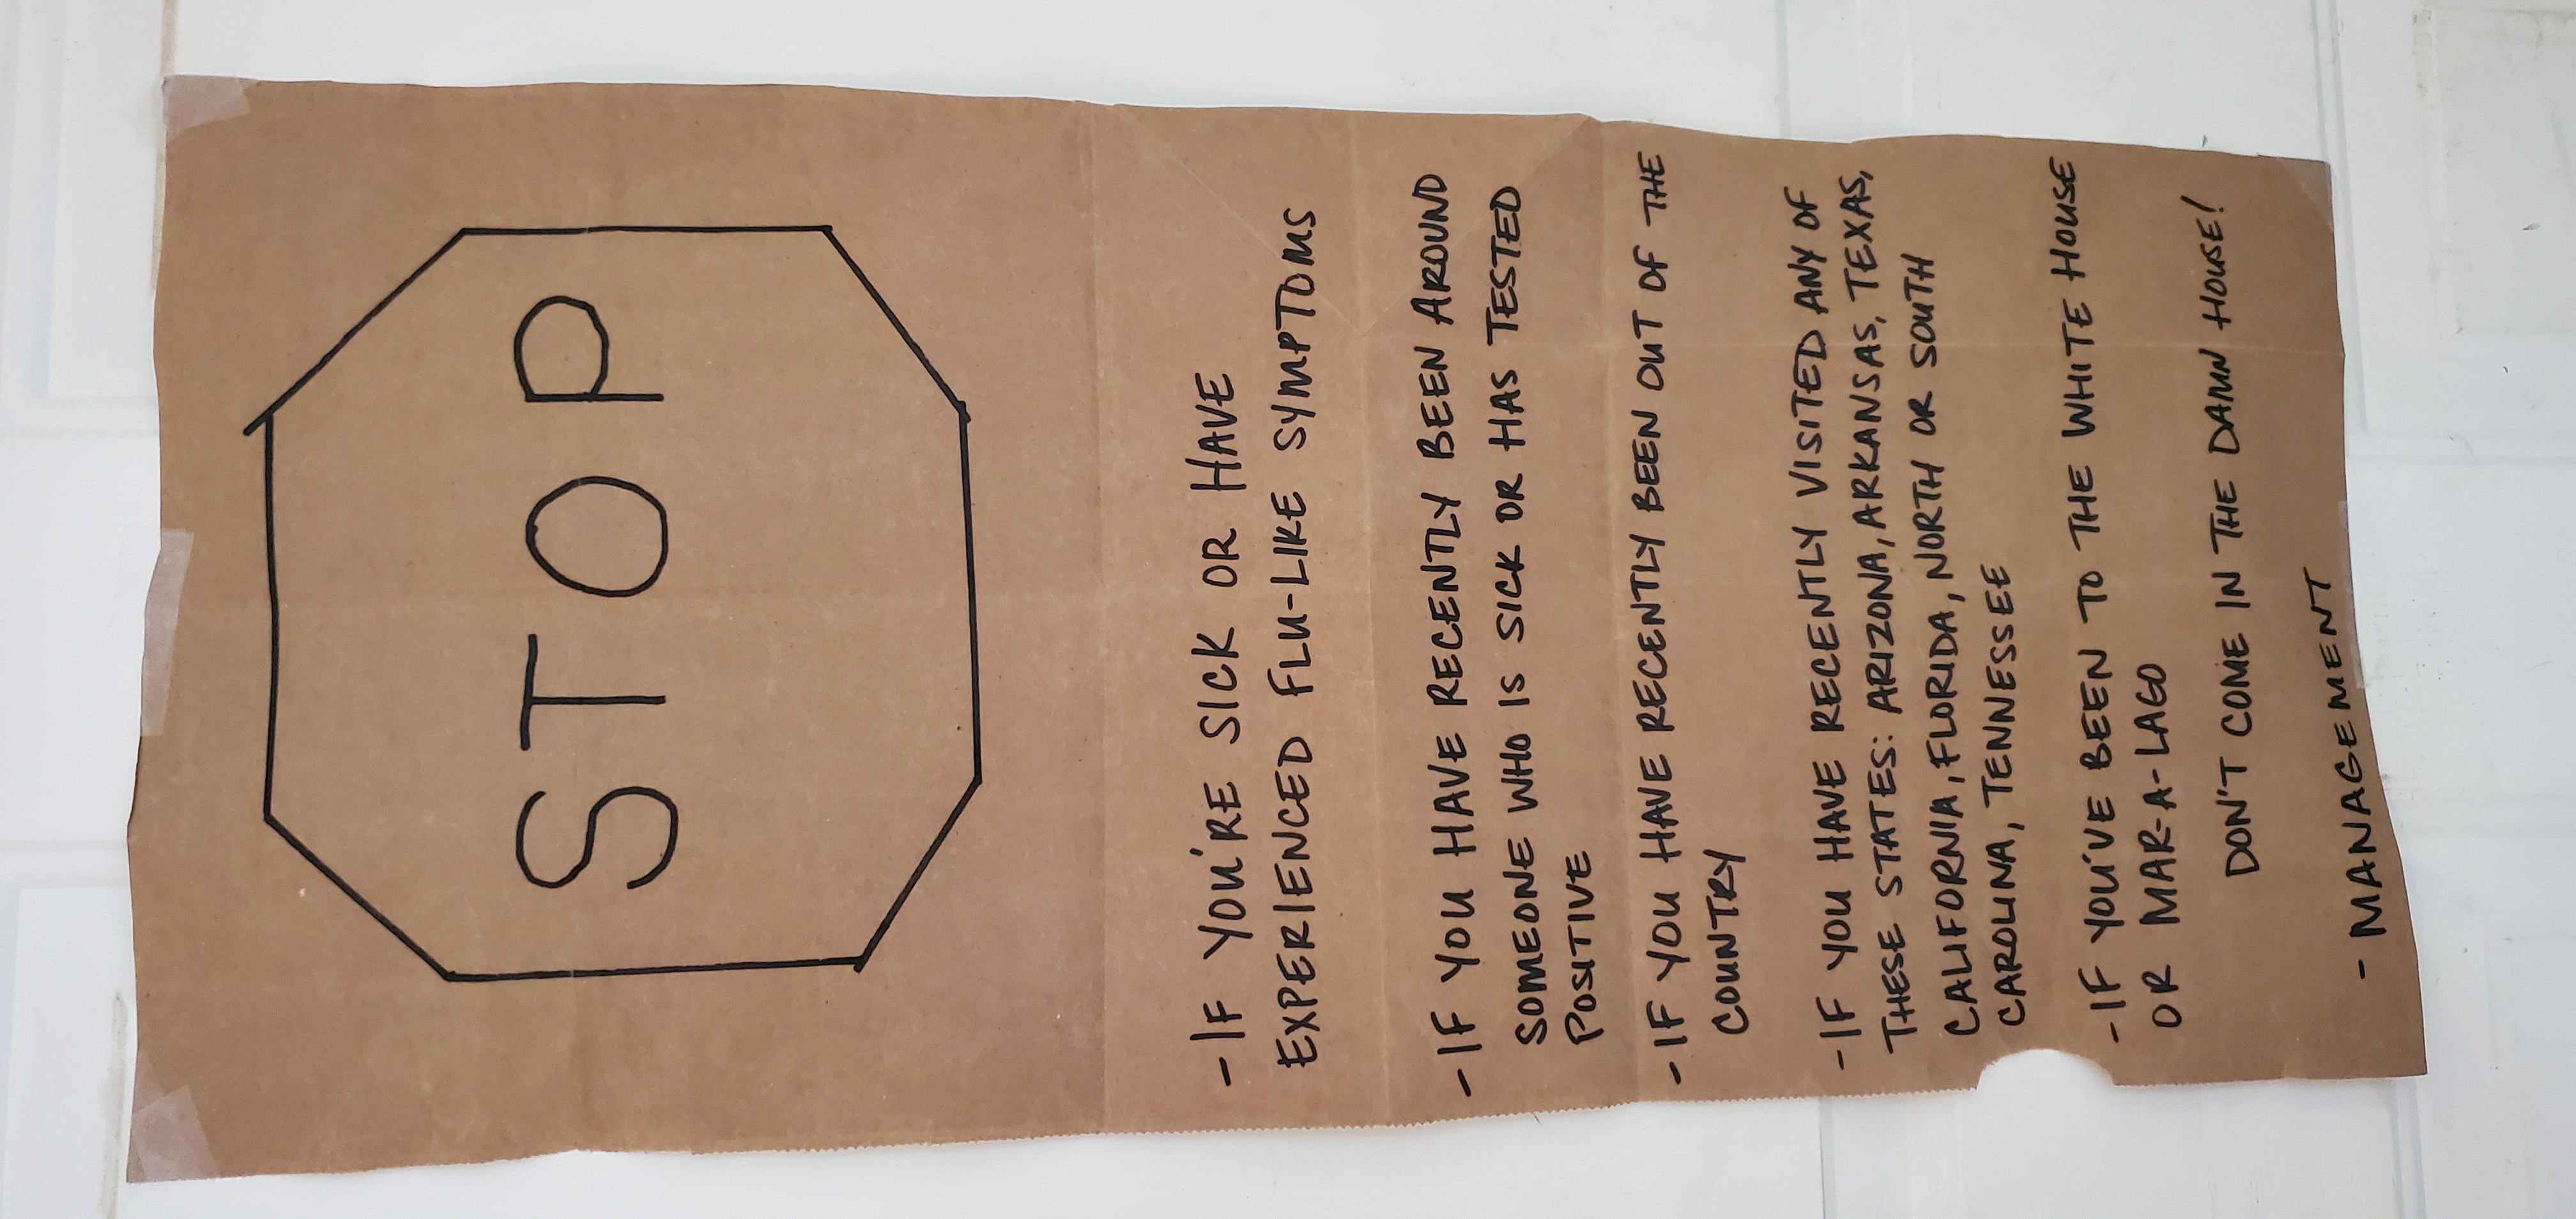 STOP
- IF YOU'RE SICK OR HAVE
EXPERIENCED FLU-LIKE SYMPTOMS
- IF YOU HAVE RECENTLY BEEN AROUND
SOMEONE WHO IS SICK OR HAS TESTED
POSITIVE
- IF YOU HAVE RECENTLY BEEN OUT OF THE
COUNTRY
- IF YOU HAVE RECENTLY VISITED ANY OF
THESE STATES: ARIZONA, ARKANSAS, TEXAS,
CALIFORNIA, FLORIDA, NORTH OR SOUTH
CAROLINA, TENNESSEE
- IF YOU'VE BEEN TO THE WHITE HOUSE
OR MAR-A-LAGO
DON'T COME IN THE DAMN HOUSE!
- MANAGEMENT